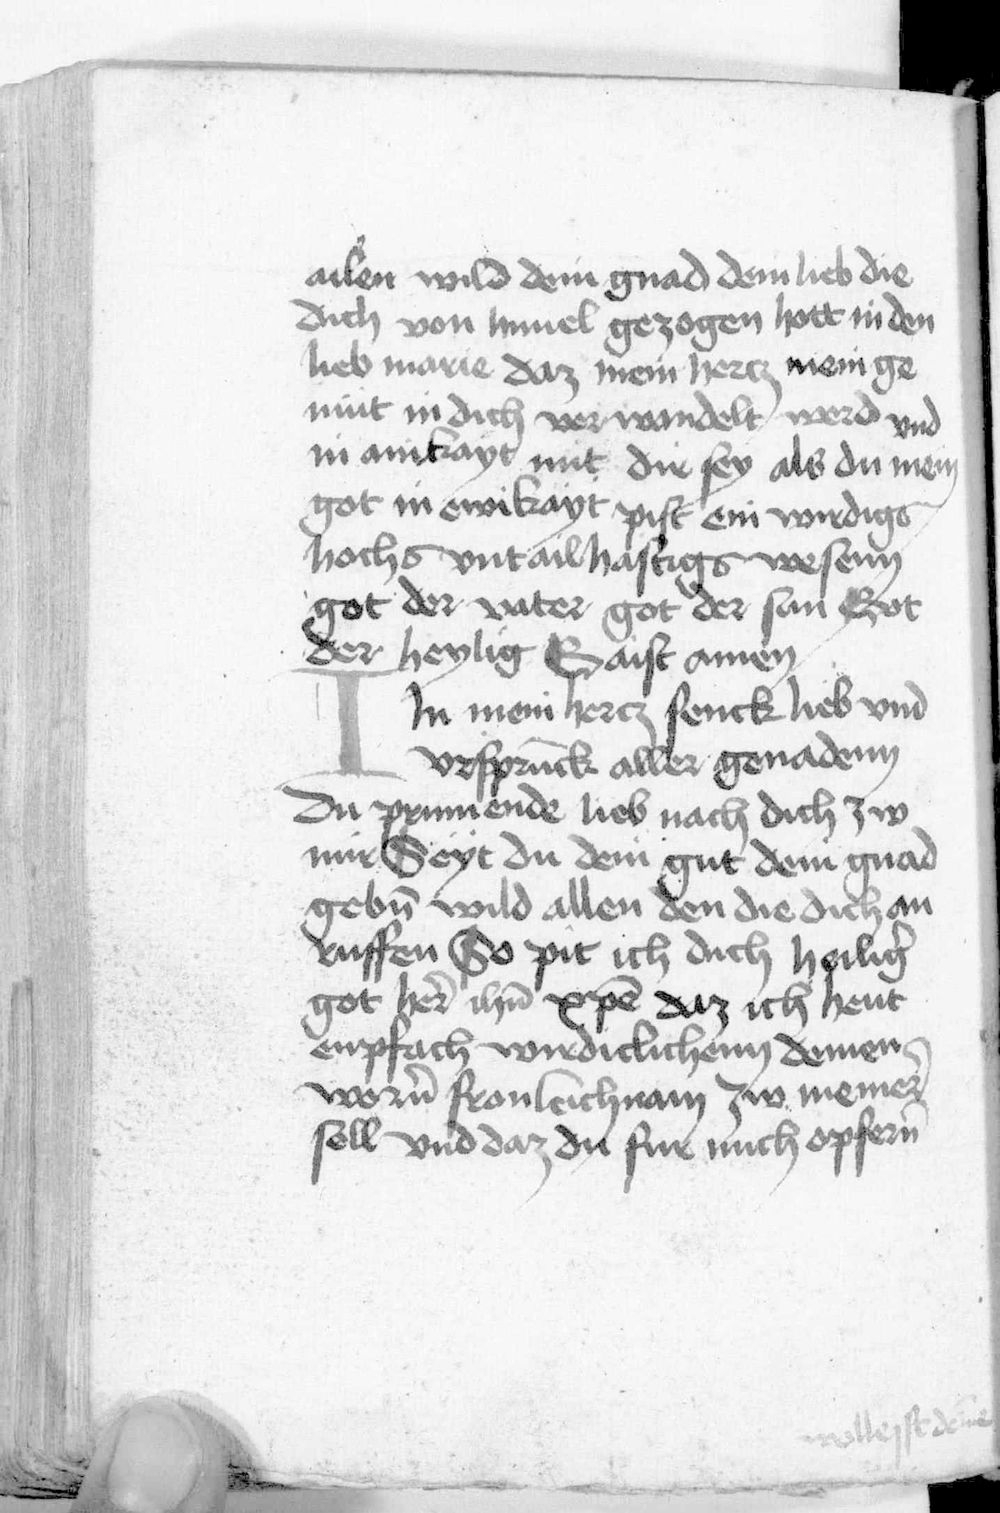 ailen wild dein gnad dein lieb die
dich von himel gezogen hott in den
lieb marie daz mein hercz mein ge
müt in dich verwandelt werd vnd
in ainikayt mit dir sey als du mein
got in ewikayt pist ein wirdigs
hochs vntailhaftigs wesenn
got der vater got der sun Got
der heylig Gaist amen
In mein hercz senck lieb vnd
vrsprunck aller genadenn
Du prinnende lieb nach dich zw
mir Seyt du dein gut dein gnad
gebn̄ wild allen den die dich an
ruffen So pit ich dich heilig̉
got her̉ ihū xp̄e daz ich heut
enpfach wirdiclichenn deinen
worn̄ fronleichnam zw meiner
sell vnd daz du fur mich opfern̄
wollejst deine